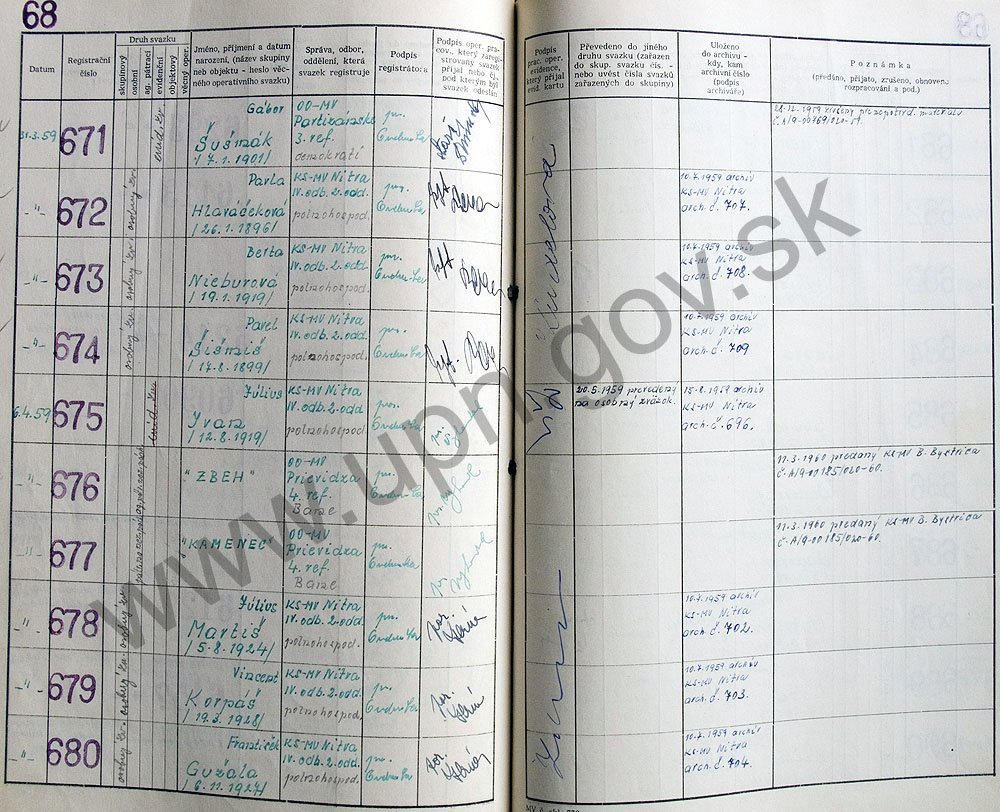 68
Datum
Registrační číslo
Druh svazku
skupinový
osobní
ag. pátrací
evidenční
objektový
věcný oper.
Jméno, příjmení a datum
narození, (název skupiny
neb objektu - heslo věc-
ného operativního svazku)
Správa, odbor,
oddělení, která
svazek registruje
Podpis
registrátora
Podpis oper. pra-
cov., který zareg-
istrovaný svazek
přijal nebo čj.,
pod kterým byl
svazek odeslán
Podpis
prac. oper.
evidence,
který přijal
evid. kartu
Převedeno do jiného
druhu svazku (zařazen
do skup. svazku čís. -
nebo uvést čísla svazků
zařazených do skupiny)
Uloženo
do archivu -
kdy, kam
archivní číslo
(podpis
archiváře)
Poznámka
(předáno, přijato, zrušeno, obnoven.
rozpracování a pod.)
31.3.59
671
Gábor
Šušmák
/7.1.1901/
OO-MV
Partizánske
3. ref.
demokrati
28.12.1959
-"-
672
osobný zv.
Pavla
Hlaváčková
/26.1.1896/
KS-MV Nitra
IV.odb.2.odd.
poľnohospod.
10.7.1959 archív
KS-MV Nitra
arch.č. 707.
-"-
673
osobný zv.
Berta
Nieburová
/19.1.1919/
KS-MV Nitra
IV.odb.2.odd.
poľnohospod.
10.7.1959 archív
KS-MV Nitra
arch.č. 708.
-"-
674
osobný zv.
Pavel
Šišmiš
/17.8.1899/
KS-MV Nitra
IV.odb.2.odd.
poľnohospod.
10.7.1959 archív
KS-MV Nitra
arch.č. 709
6.4.59
675
Július
Ivan
/12.8.1919/
KS-MV Nitra
IV.odb.2.odd
poľnohospod.
20.5.1959 prevedený
na osobný zväzok.
15.8.1959 archív
KS-MV Nitra
arch.č. 696.
-"-
676
"ZBEH"
OO-MV
Prievidza
4. ref.
Bane
11.3.1960 predaný KS-MV B. Bystrica
č.A/9-00185/020-60.
-"-
677
"KAMENEC"
OO-MV
Prievidza
4. ref.
Bane
11.3.1960 predaný KS-MV B. Bystrica
č.A/9-00185/020-60.
-"-
678
osobný zv.
Július
Martiš
/5.8.1924/
KS-MV Nitra
IV.odb.2.odd.
poľnohospod.
10.7.1959 archív
KS-MV Nitra
arch.č. 702.
-"-
679
osobný zv.
Vincent
Korpáš
/19.3.1928/
KS-MV Nitra
IV.odb.2.odd.
poľnohospod.
10.7.1959 archív
KS-MV Nitra
arch.č. 703.
-"-
680
osobný zv.
František
Gužala
/6.11.1927/
KS-MV Nitra
IV.odb.2.odd.
poľnohospod.
10.7.1959 archív
KS-MV Nitra
arch.č. 704.
www.upn.gov.sk